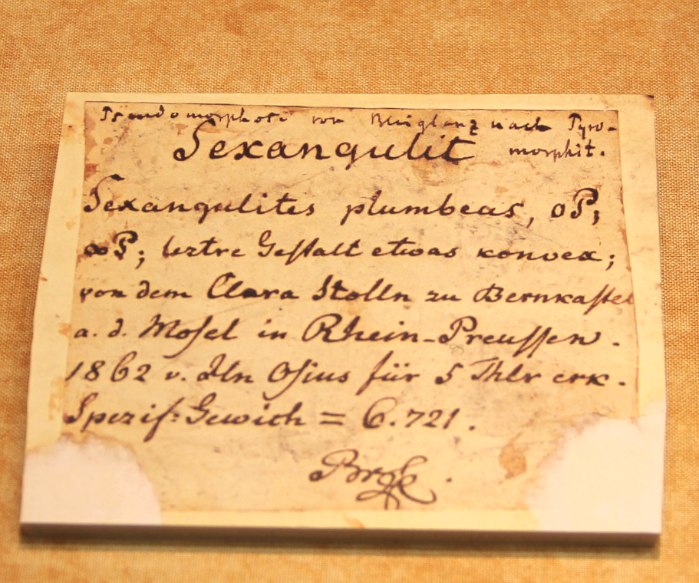 Pseudomorphose von Bleiglanz nach Pyro-
morphit.
Sexangulit
Sexangulites plumbeas, oP;
∞P; leztre Gestalt etwas konvex;
von dem Clara Stolln zu Bernkastel
a. d. Mosel in Rhein-Preussen.
1862 v. Osius für 5 Thlr erk.
Spezif: Gewich = 6.721.